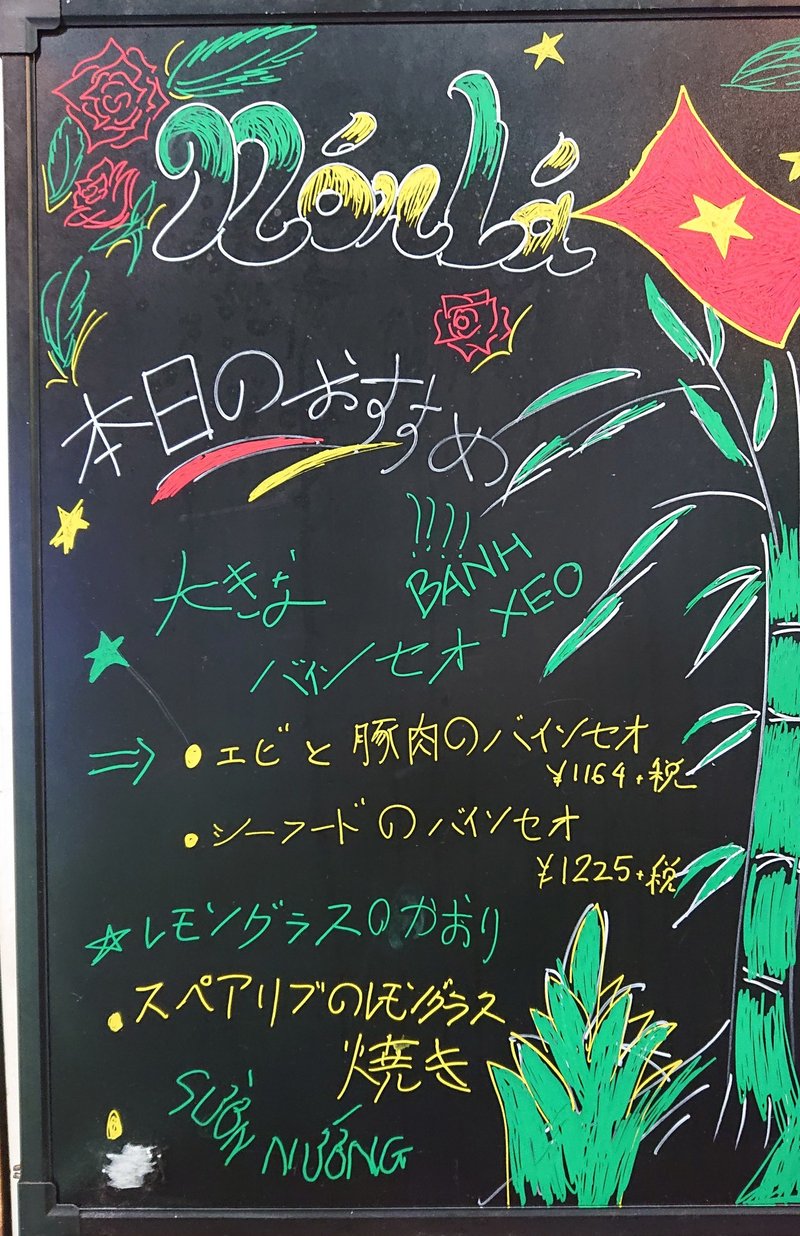 Nón Lá
本日のおすすめ
!!!!
大きな BÁNH XEO
バインセオ
⇒ • エビと豚肉のバインセオ
¥1164+税
• シーフードのバインセオ
¥1225+税
☆レモングラスのかおり
• スペアリブのレモングラス
焼き
SƯỜN NƯỚNG